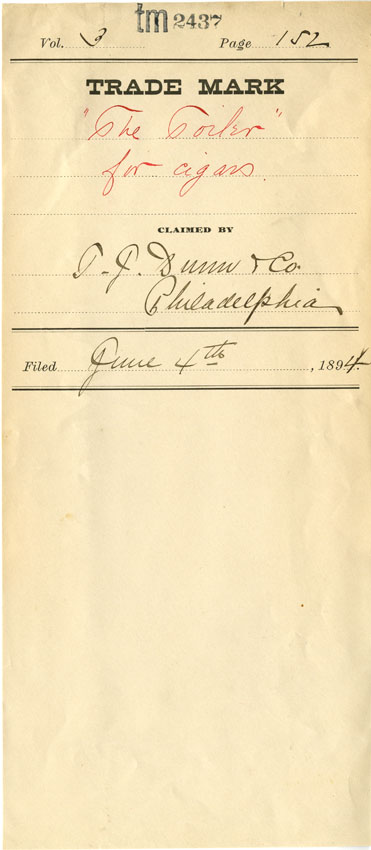 tm 2437
Vol. 3 Page 152
TRADE MARK
"The Toiler"
for cigars
CLAIMED BY
T. J. Dunn & Co.
Philadelphia
Filed June 4th, 1894.